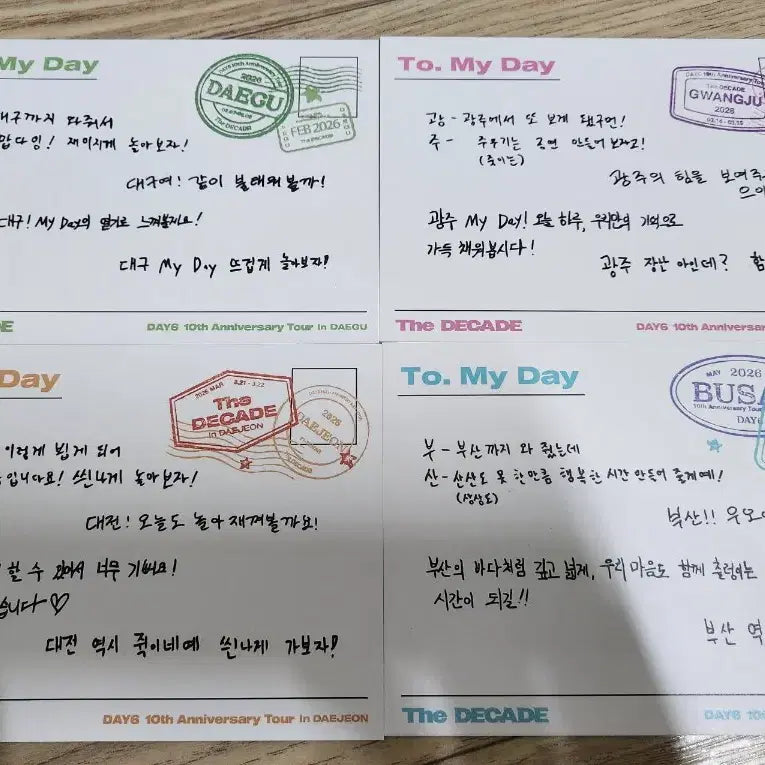 My Day
DAY6 10th Anniversary Tour
2026
DAEGU
The DECADE
FEB 2026
대구까지 와줘서
맙다잉! 재미지게 놀아보자!
대구여! 같이 불태워볼까!
대구! My Day의 열기로 느껴볼게요!
대구 My Day 뜨겁게 놀아보자!
DE
DAY6 10th Anniversary Tour in DAEGU
To. My Day
DAY6 10th Anniversary Tour
The DECADE
GWANGJU
2026
광 - 광주에서 또 보게 됐구먼!
주 -
공연 만들어보자고!
(죽이는)
광주의 힘을 보여주
으아
광주 My Day! 오늘 하루, 우리만의 기억으로
가득 채워봅시다!
광주 장난 아인데? 함
The DECADE
DAY6 10th Anniversary
Day
2026 MAR 3.21 - 3.22
The
DECADE
in DAEJEON
2026
DAEJEON
이렇게 뵙게 되어
입니다요! 씐나게 놀아보자!
대전! 오늘도 놀아 재껴볼까요!
할 수 있어서 너무 기뻐요!
습니다♡
대전 역시 쥑이네예 씐나게 가보자!
DAY6 10th Anniversary Tour in DAEJEON
To. My Day
MAY 2026
BUSA
10th Anniversary Tour
DAY6
부 - 부산까지 와 줬는데
산 - 산산도 못 한만큼 행복한 시간 만들어 줄게예!
(상상도)
부산!! 우오
부산의 바다처럼 깊고 넓게, 우리 마음도 함께 출렁이는
시간이 되길!!
부산 역
The DECADE
DAY6 10